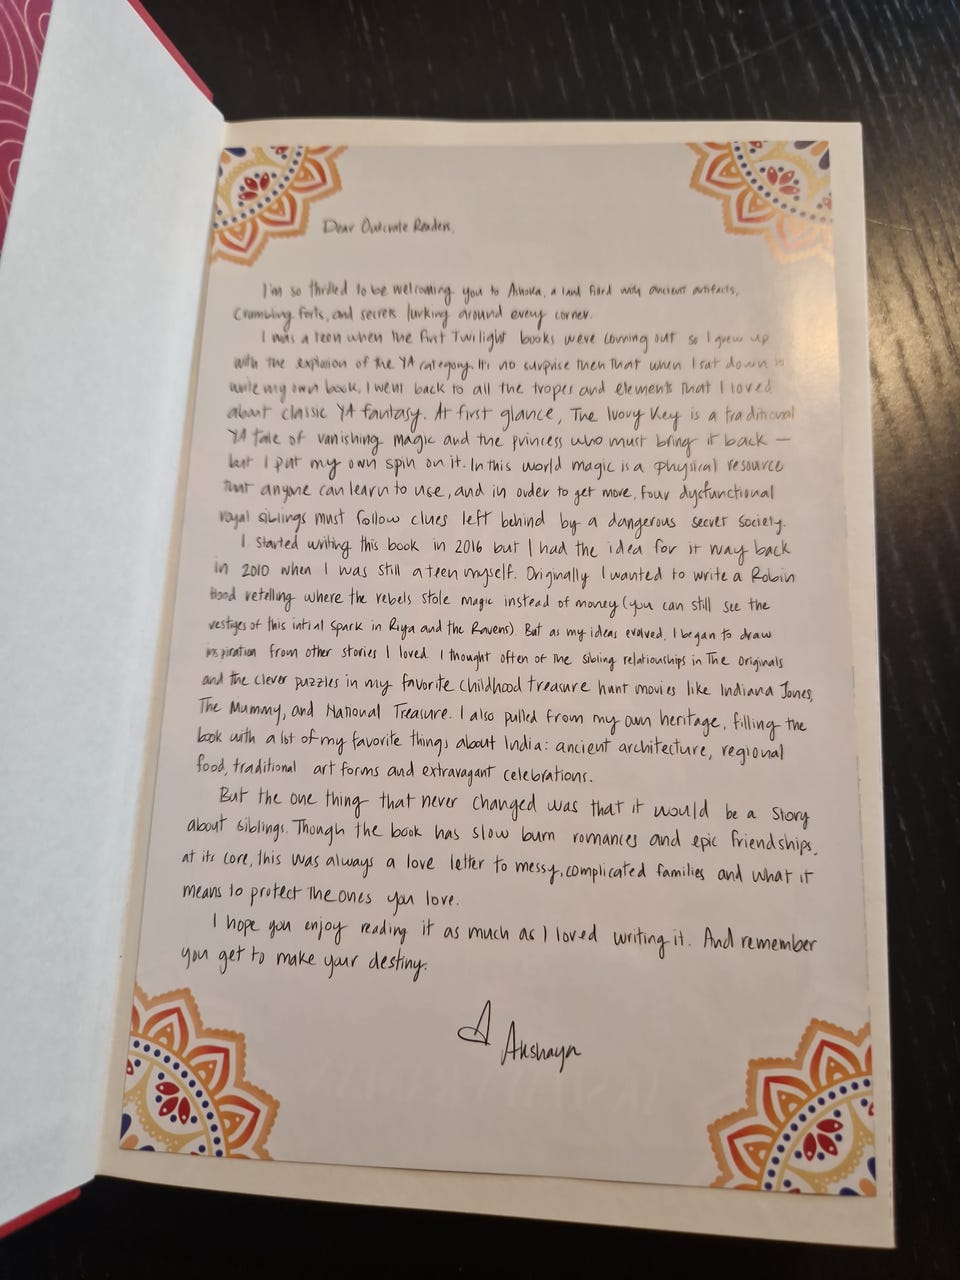 Dear Owlcrate Readers,
I'm so thrilled to be welcoming you to Ashoka, a land filled with ancient artifacts,
crumbling forts, and secrets lurking around every corner.
I was a teen when the first Twilight books were coming out so I grew up
with the explosion of the YA category. It's no surprise then that when I sat down to
write my own book, I went back to all the tropes and elements that I loved
about classic YA fantasy. At first glance, The Ivory Key is a traditional
YA tale of vanishing magic and the princess who must bring it back —
but I put my own spin on it. In this world magic is a physical resource
that anyone can learn to use, and in order to get more, four dysfunctional
royal siblings must follow clues left behind by a dangerous secret society.
I started writing this book in 2016 but I had the idea for it way back
in 2010 when I was still a teen myself. Originally I wanted to write a Robin
Hood retelling where the rebels stole magic instead of money (you can still see the
vestiges of this intial spark in Riya and the Ravens). But as my ideas evolved, I began to draw
inspiration from other stories I loved. I thought often of the sibling relationships in The Originals
and the clever puzzles in my favorite childhood treasure hunt movies like Indiana Jones,
The Mummy, and National Treasure. I also pulled from my own heritage, filling the
book with a lot of my favorite things about India: ancient architecture, regional
food, traditional art forms and extravagant celebrations.
But the one thing that never changed was that it would be a story
about siblings. Though the book has slow burn romances and epic friendships,
at its core, this was always a love letter to messy, complicated families and what it
means to protect the ones you love.
I hope you enjoy reading it as much as I loved writing it. And remember
you get to make your destiny.
Akshaya